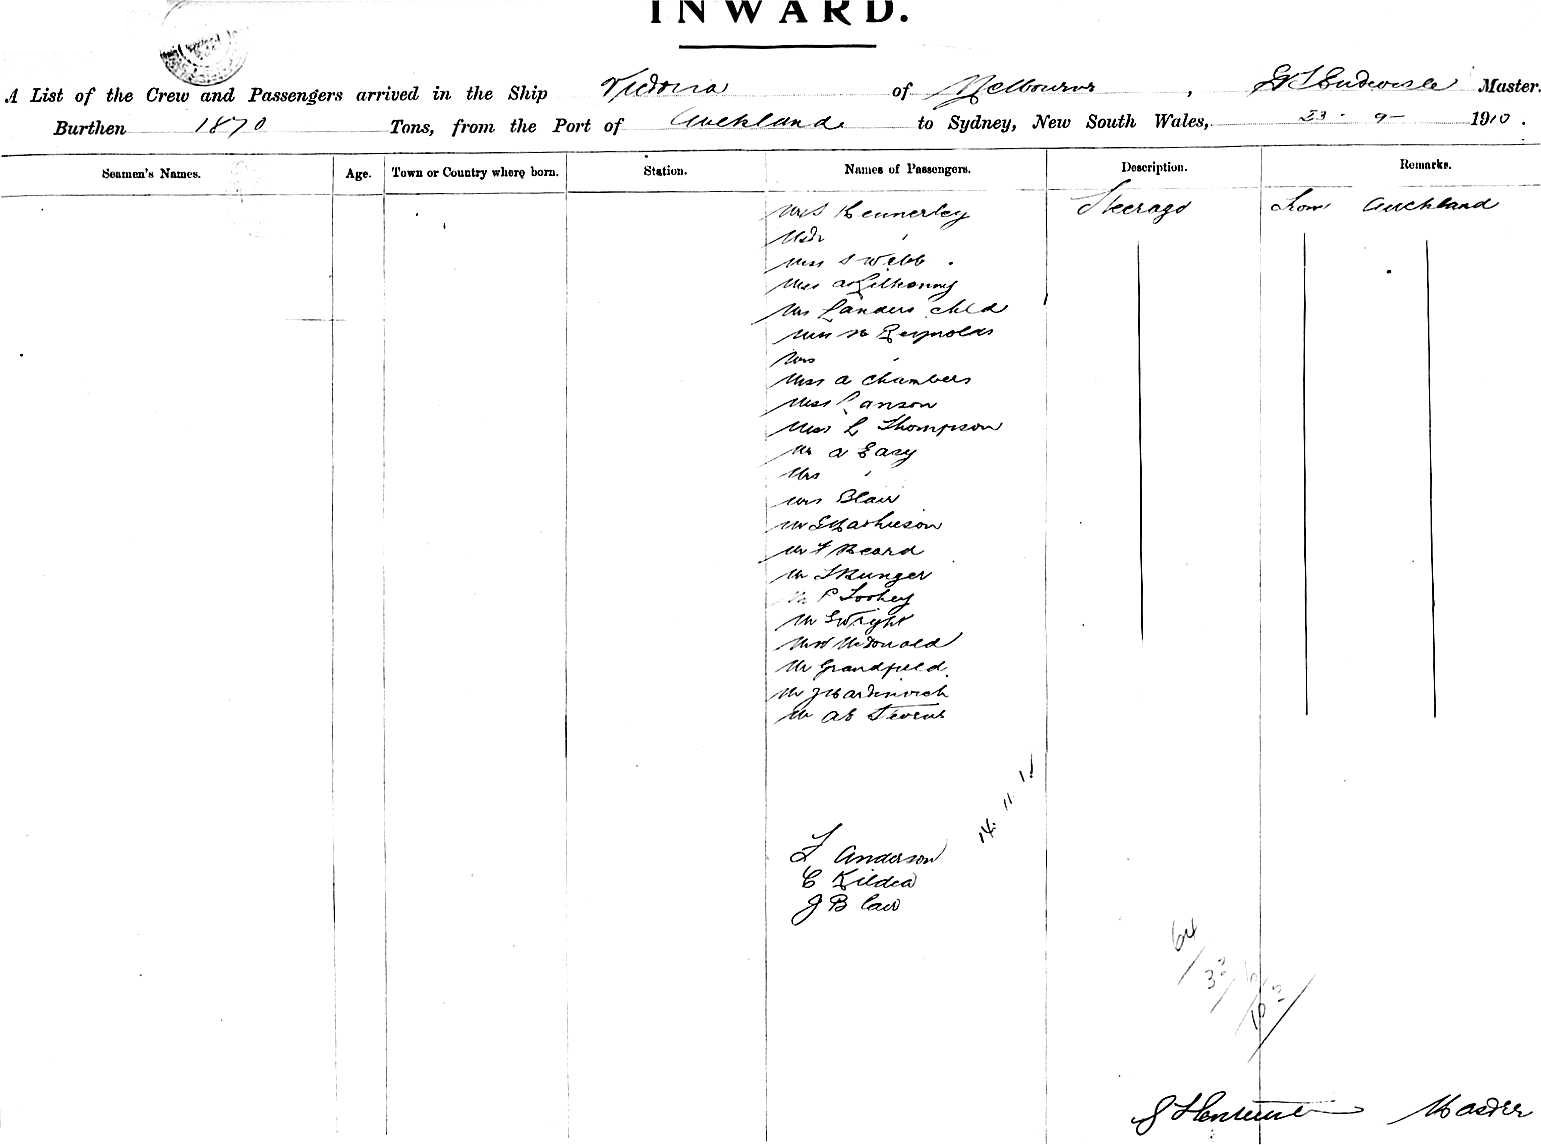 INWARD.
A List of the Crew and Passengers arrived in the Ship Victoria of Melbourne, Master.
Burthen 1870 Tons, from the Port of Auckland to Sydney, New South Wales, 23 - 9 - 1910.
Seamen's Names. Age. Town or Country where born. Station. Names of Passengers. Description. Remarks.
Kennerley Steerage From Auckland
Miss S Webb
Miss Kilkenny
Mrs Landers child
Miss Reynolds
Mrs "
Miss A Chambers
Miss Ranson
Miss L Thompson
Mr A Easy
Mrs "
Mrs Blair
Mr Mathieson
Mr F Beard
Mr Bunger
Mr P Toohey
Mr Wright
McDonald
Mr Grandfield
Mr J
Mr A E Stevens
14. 11. 11
Anderson
C Kildea
J B
64
Master